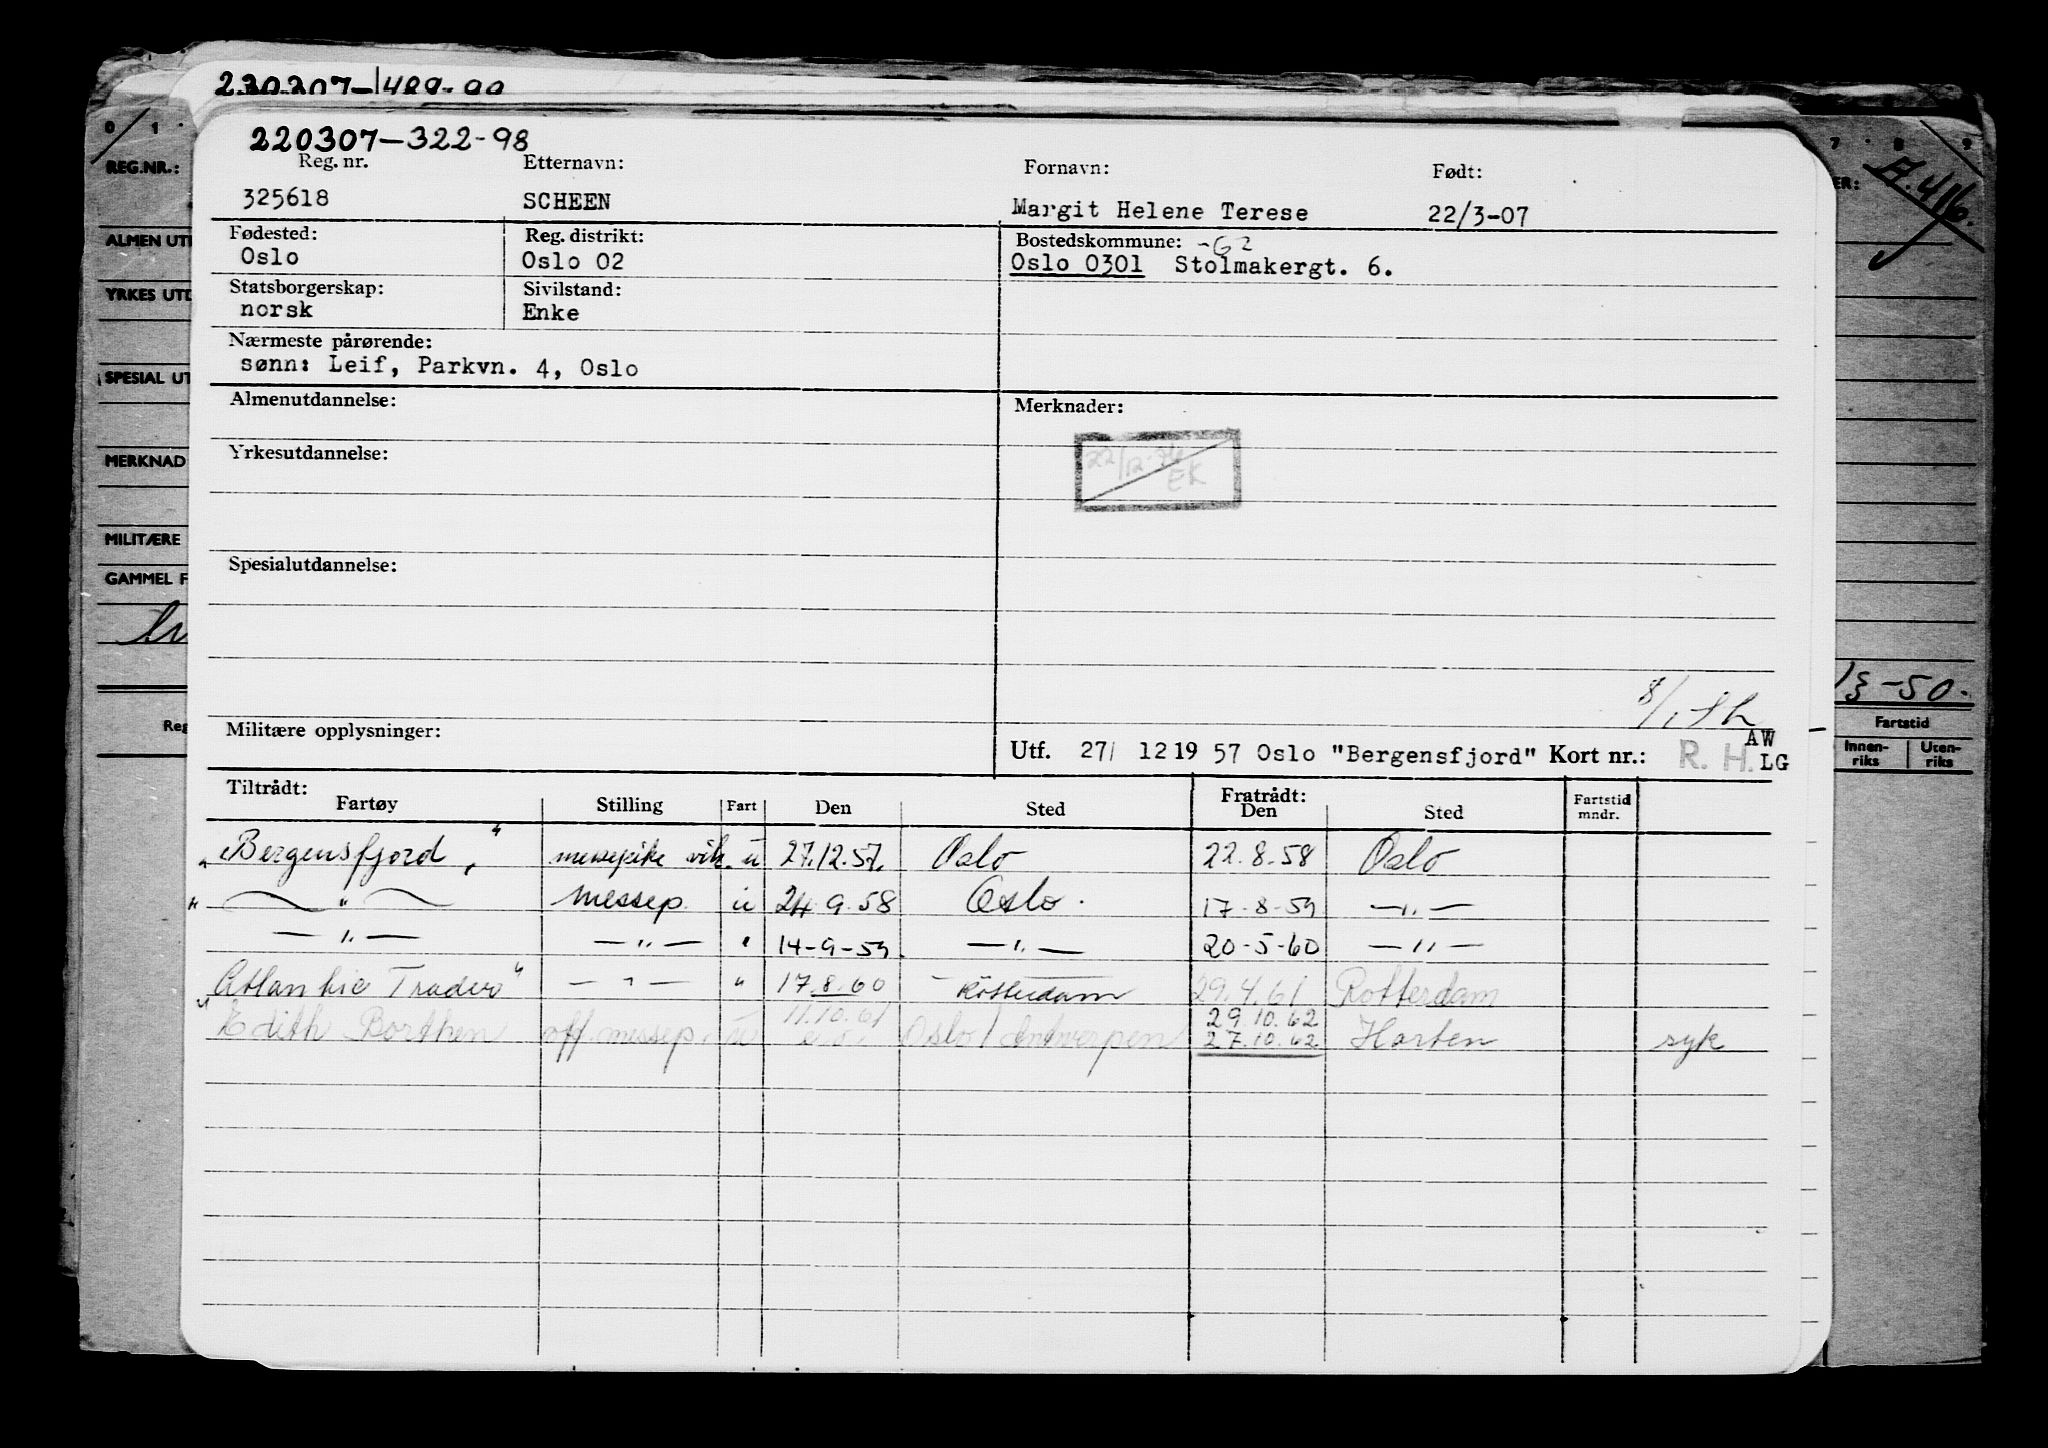 230307-1489-99
220307-322-98
Reg. nr. Etternavn: Fornavn: Født:
325618 SCHEEN Margit Helene Terese 22/3-07
Fødested: Reg. distrikt: Bostedskommune: -G2
Oslo Oslo 02 Oslo 0301 Stolmakergt. 6.
Statsborgerskap: Sivilstand:
norsk Enke
Nærmeste pårørende:
sønn: Leif, Parkvn. 4, Oslo
Almenutdannelse: Merknader:
Yrkesutdannelse:
EK
Spesialutdannelse:
Militære opplysninger:
Utf. 27/ 12 19 57 Oslo "Bergensfjord" Kort nr.: R. H. AW LG
Tiltrådt: Fratrådt:
Fartøy Stilling Fart Den Sted Den Sted Fartstid mndr.
"Bergensfjord" messepike vik. u 27.12.57. Oslo 22.8.58 Oslo
" — " — messep. u 24.9.58 Oslo. 17-8-59 — " —
— " — — " — " 14-9-59. — " — 20-5-60 — " —
"Atlantic Trader" — " — " 17.8.60 Rotterdam 29.4.61 Rotterdam
11.10.61 29.10.62
"Edith Borthen off. messep. u Oslo/Antwerpen 27.10.62 Horten syk
0 1 7 8 9
REG.NR.:
A.416.
ALMEN UT
YRKES UTD
SPESIAL UT
MERKNAD
MILITÆRE
GAMMEL F
-50.
Reg
Fartstid
Innen-riks Uten-riks